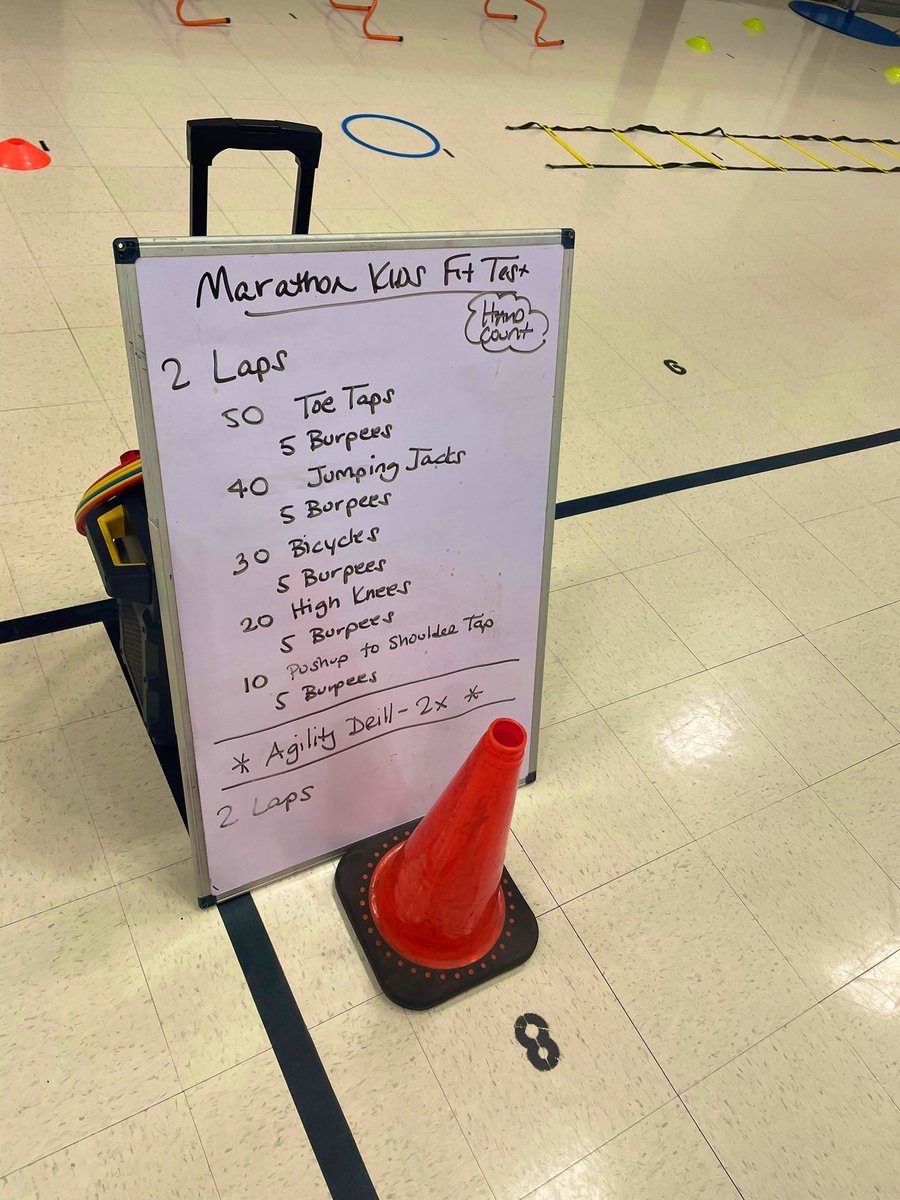 Marathon Kids Fit Test
Hand
Count
2 Laps
50 Toe Taps
5 Burpees
40 Jumping Jacks
5 Burpees
30 Bicycles
5 Burpees
20 High Knees
5 Burpees
10 Pushup to Shoulder Tap
5 Burpees
* Agility Drill - 2x *
2 Laps
6
8